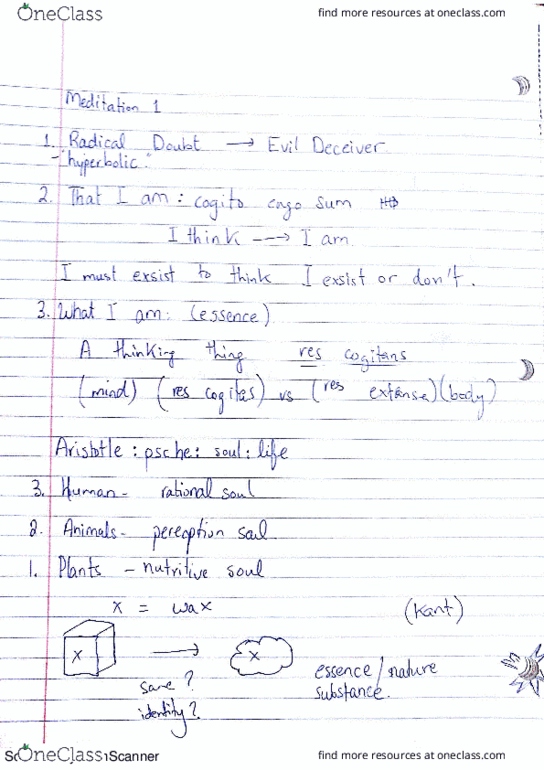 OneClass
find more resources at oneclass.com
Meditation 1
1. Radical Doubt → Evil Deceiver
- "hyperbolic"
2. That I am : cogito ergo sum
I think ---→ I am
I must exsist to think I exsist or don't.
3. What I am: (essence)
A thinking thing res cogitans
(mind) (res cogitas) vs (res extense) (body)
Aristotle : psche : soul : life
3. Human - rational soul
2. Animals - perception soul
1. Plants - nutritive soul
x = wax (Kant)
X → x
essence / nature
substance.
same ?
identity ?
OneClass
Scanner
find more resources at oneclass.com